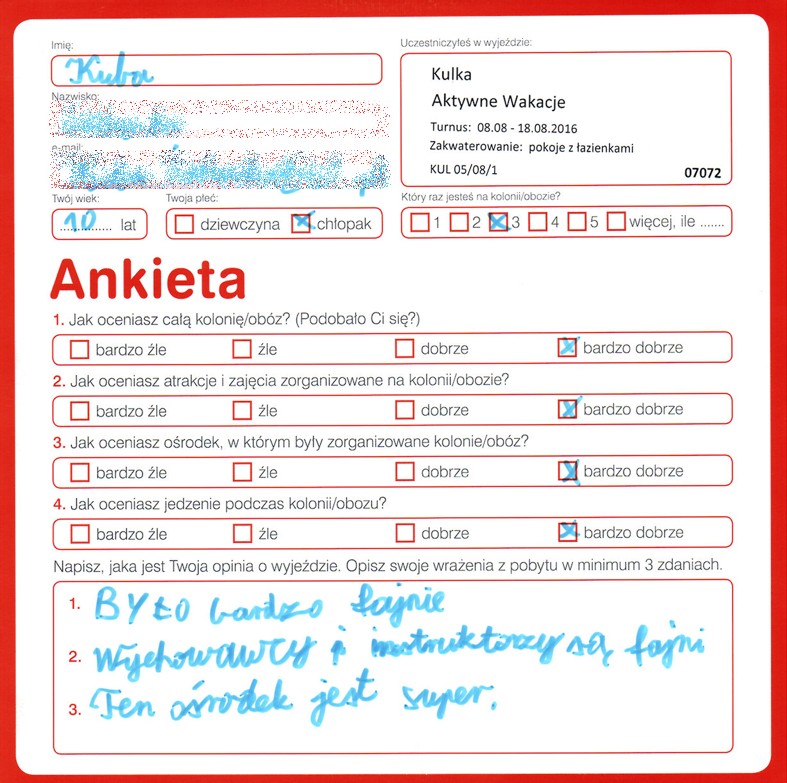 Imię:
Kuba
Uczestniczyłeś w wyjeździe:
Kulka
Aktywne Wakacje
Turnus: 08.08 - 18.08.2016
Zakwaterowanie: pokoje z łazienkami
KUL 05/08/1 07072
Nazwisko:
e-mail:
Twój wiek:
10 lat
Twoja płeć:
dziewczyna chłopak
Który raz jesteś na kolonii/obozie?
1 2 3 4 5 więcej, ile .......
Ankieta
1. Jak oceniasz całą kolonię/obóz? (Podobało Ci się?)
bardzo źle źle dobrze bardzo dobrze
2. Jak oceniasz atrakcje i zajęcia zorganizowane na kolonii/obozie?
bardzo źle źle dobrze bardzo dobrze
3. Jak oceniasz ośrodek, w którym były zorganizowane kolonie/obóz?
bardzo źle źle dobrze bardzo dobrze
4. Jak oceniasz jedzenie podczas kolonii/obozu?
bardzo źle źle dobrze bardzo dobrze
Napisz, jaka jest Twoja opinia o wyjeździe. Opisz swoje wrażenia z pobytu w minimum 3 zdaniach.
1. BYŁO bardzo fajnie
2. Wychowawcy i instruktorzy są fajni
3. Ten ośrodek jest super.